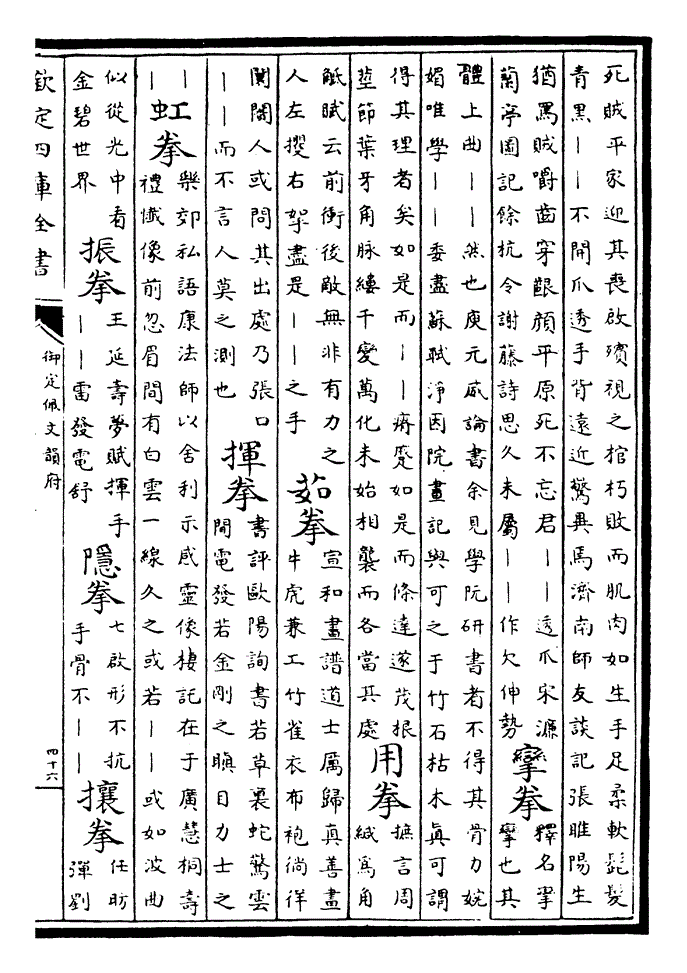 死賊平家迎其喪啟殯視之棺朽敗而肌肉如生手足柔軟髭髮
青黑丨丨不開爪透手背遠近驚異焉濟南師友談記張睢陽生
猶罵賊嚼齒穿齦顔平原死不忘君丨丨透爪宋濂
蘭亭圖記餘杭令謝藤詩思久未屬丨丨作欠伸勢
攣拳
釋名攣
攣也其
體上曲丨丨然也庾元威論書余見學阮研書者不得其骨力婉
媚唯學丨丨委盡蘇軾淨因院畫記與可之于竹石枯木眞可謂
得其理者矣如是而丨丨瘠蹙如是而條達遂茂根
莖節葉牙角脉縷千變萬化未始相襲而各當其處
用拳
摭言周
緘寫角
觝賦云前衝後敵無非有力之
人左攖右拏盡是丨丨之手
茹拳
宣和畫譜道士厲歸真善畫
牛虎兼工竹雀衣布袍徜徉
闤闠人或問其出處乃張口
丨丨而不言人莫之測也
揮拳
書評歐陽詢書若草裏蛇驚雲
間電發若金剛之瞋目力士之
丨
丨
虹拳
樂郊私語康法師以舍利示感靈像棲記在于廣慧桐壽
禮懺像前忽眉間有白雲一線久之或若丨丨或如波曲
似從光中看
金碧世界
振拳
王延壽夢賦揮手
丨丨雷發電舒
隱拳
七啟形不抗
手骨不丨丨
攘拳
任昉
彈劉
欽定四庫全書
御定佩文韻府
四十六